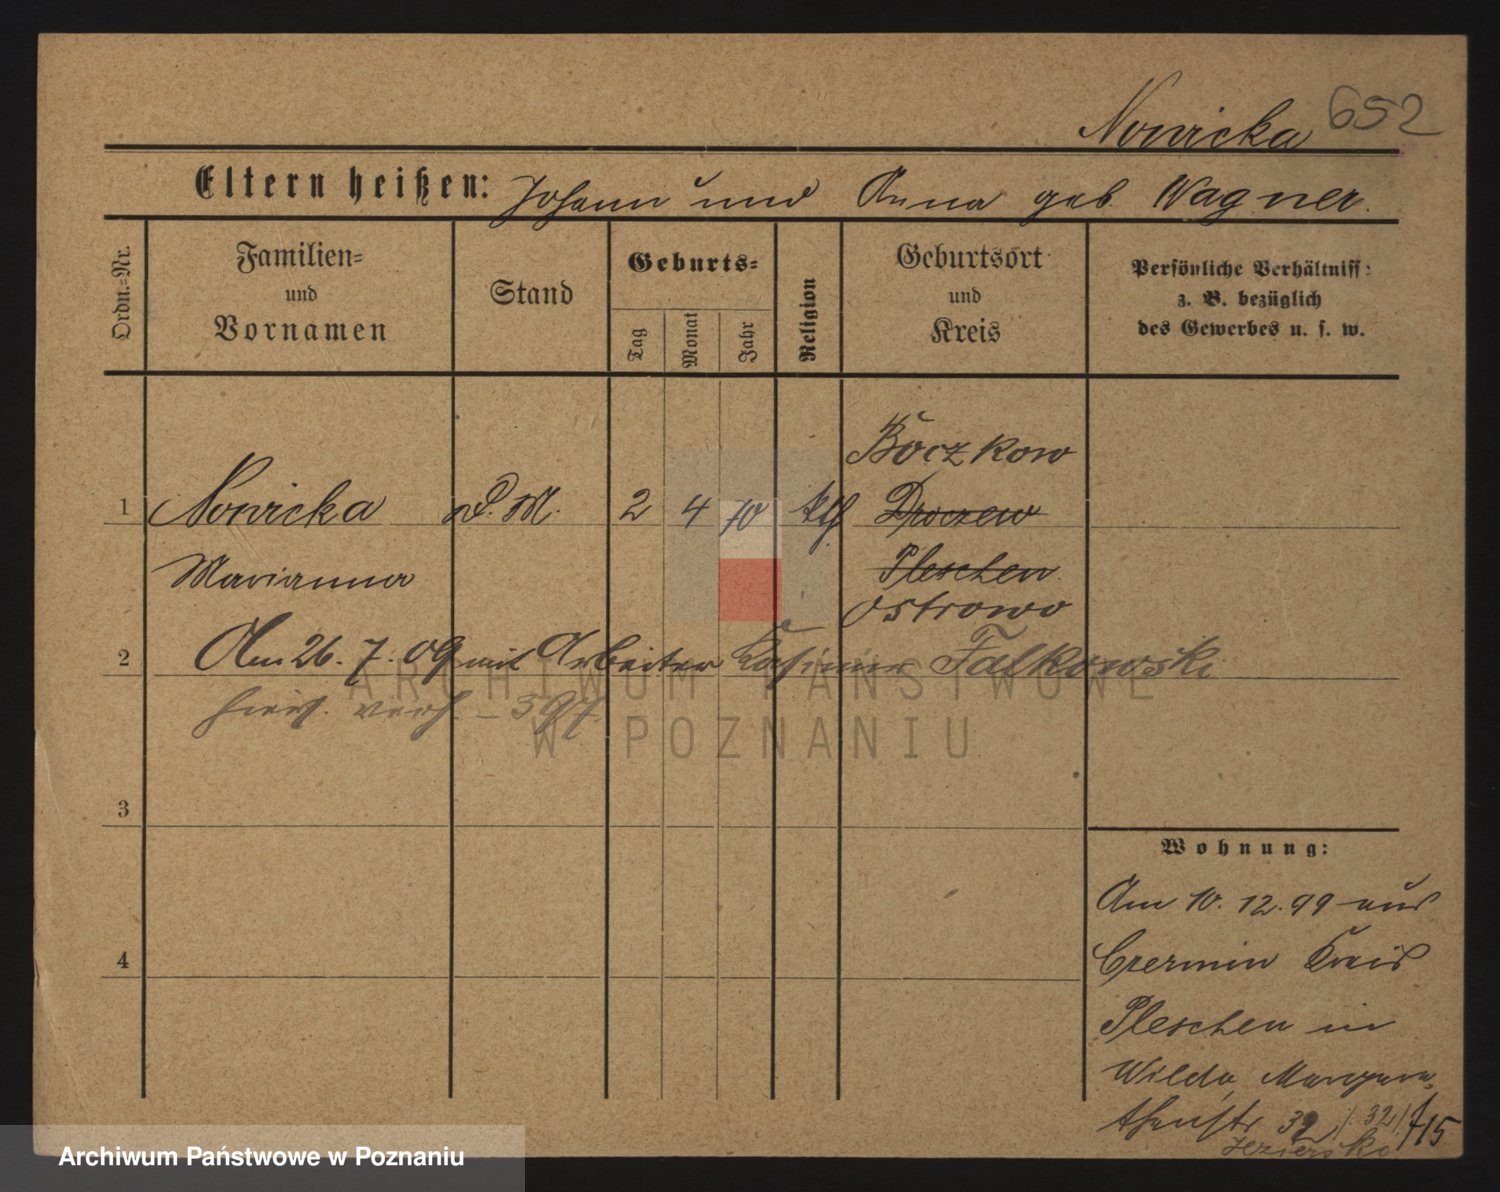 Nowicka 652
Eltern heißen: Johann und Anna geb. Wagner.
Ordn.-Nr.
Familien= und Vornamen
Stand
Geburts=
Tag
Monat
Jahr
Religion
Geburtsort und Kreis
Persönliche Verhältniss: z. B. bezüglich des Gewerbes u. s. w.
Boczkow
1 Nowicka D. M. 2 4 70 kth Droczew
Marianna Pleschen
Ostrowo
2 Am 26. 7. 09 mit Arbeiter Kasimir Falkowski
hier verh. – 397
3
4
Wohnung:
Am 10. 12. 99 aus
Czermin Kreis
Pleschen in
Wilda, Margare=
thenstr 32 /32/ 715
ARCHIWUM PAŃSTWOWE
W POZNANIU
Archiwum Państwowe w Poznaniu